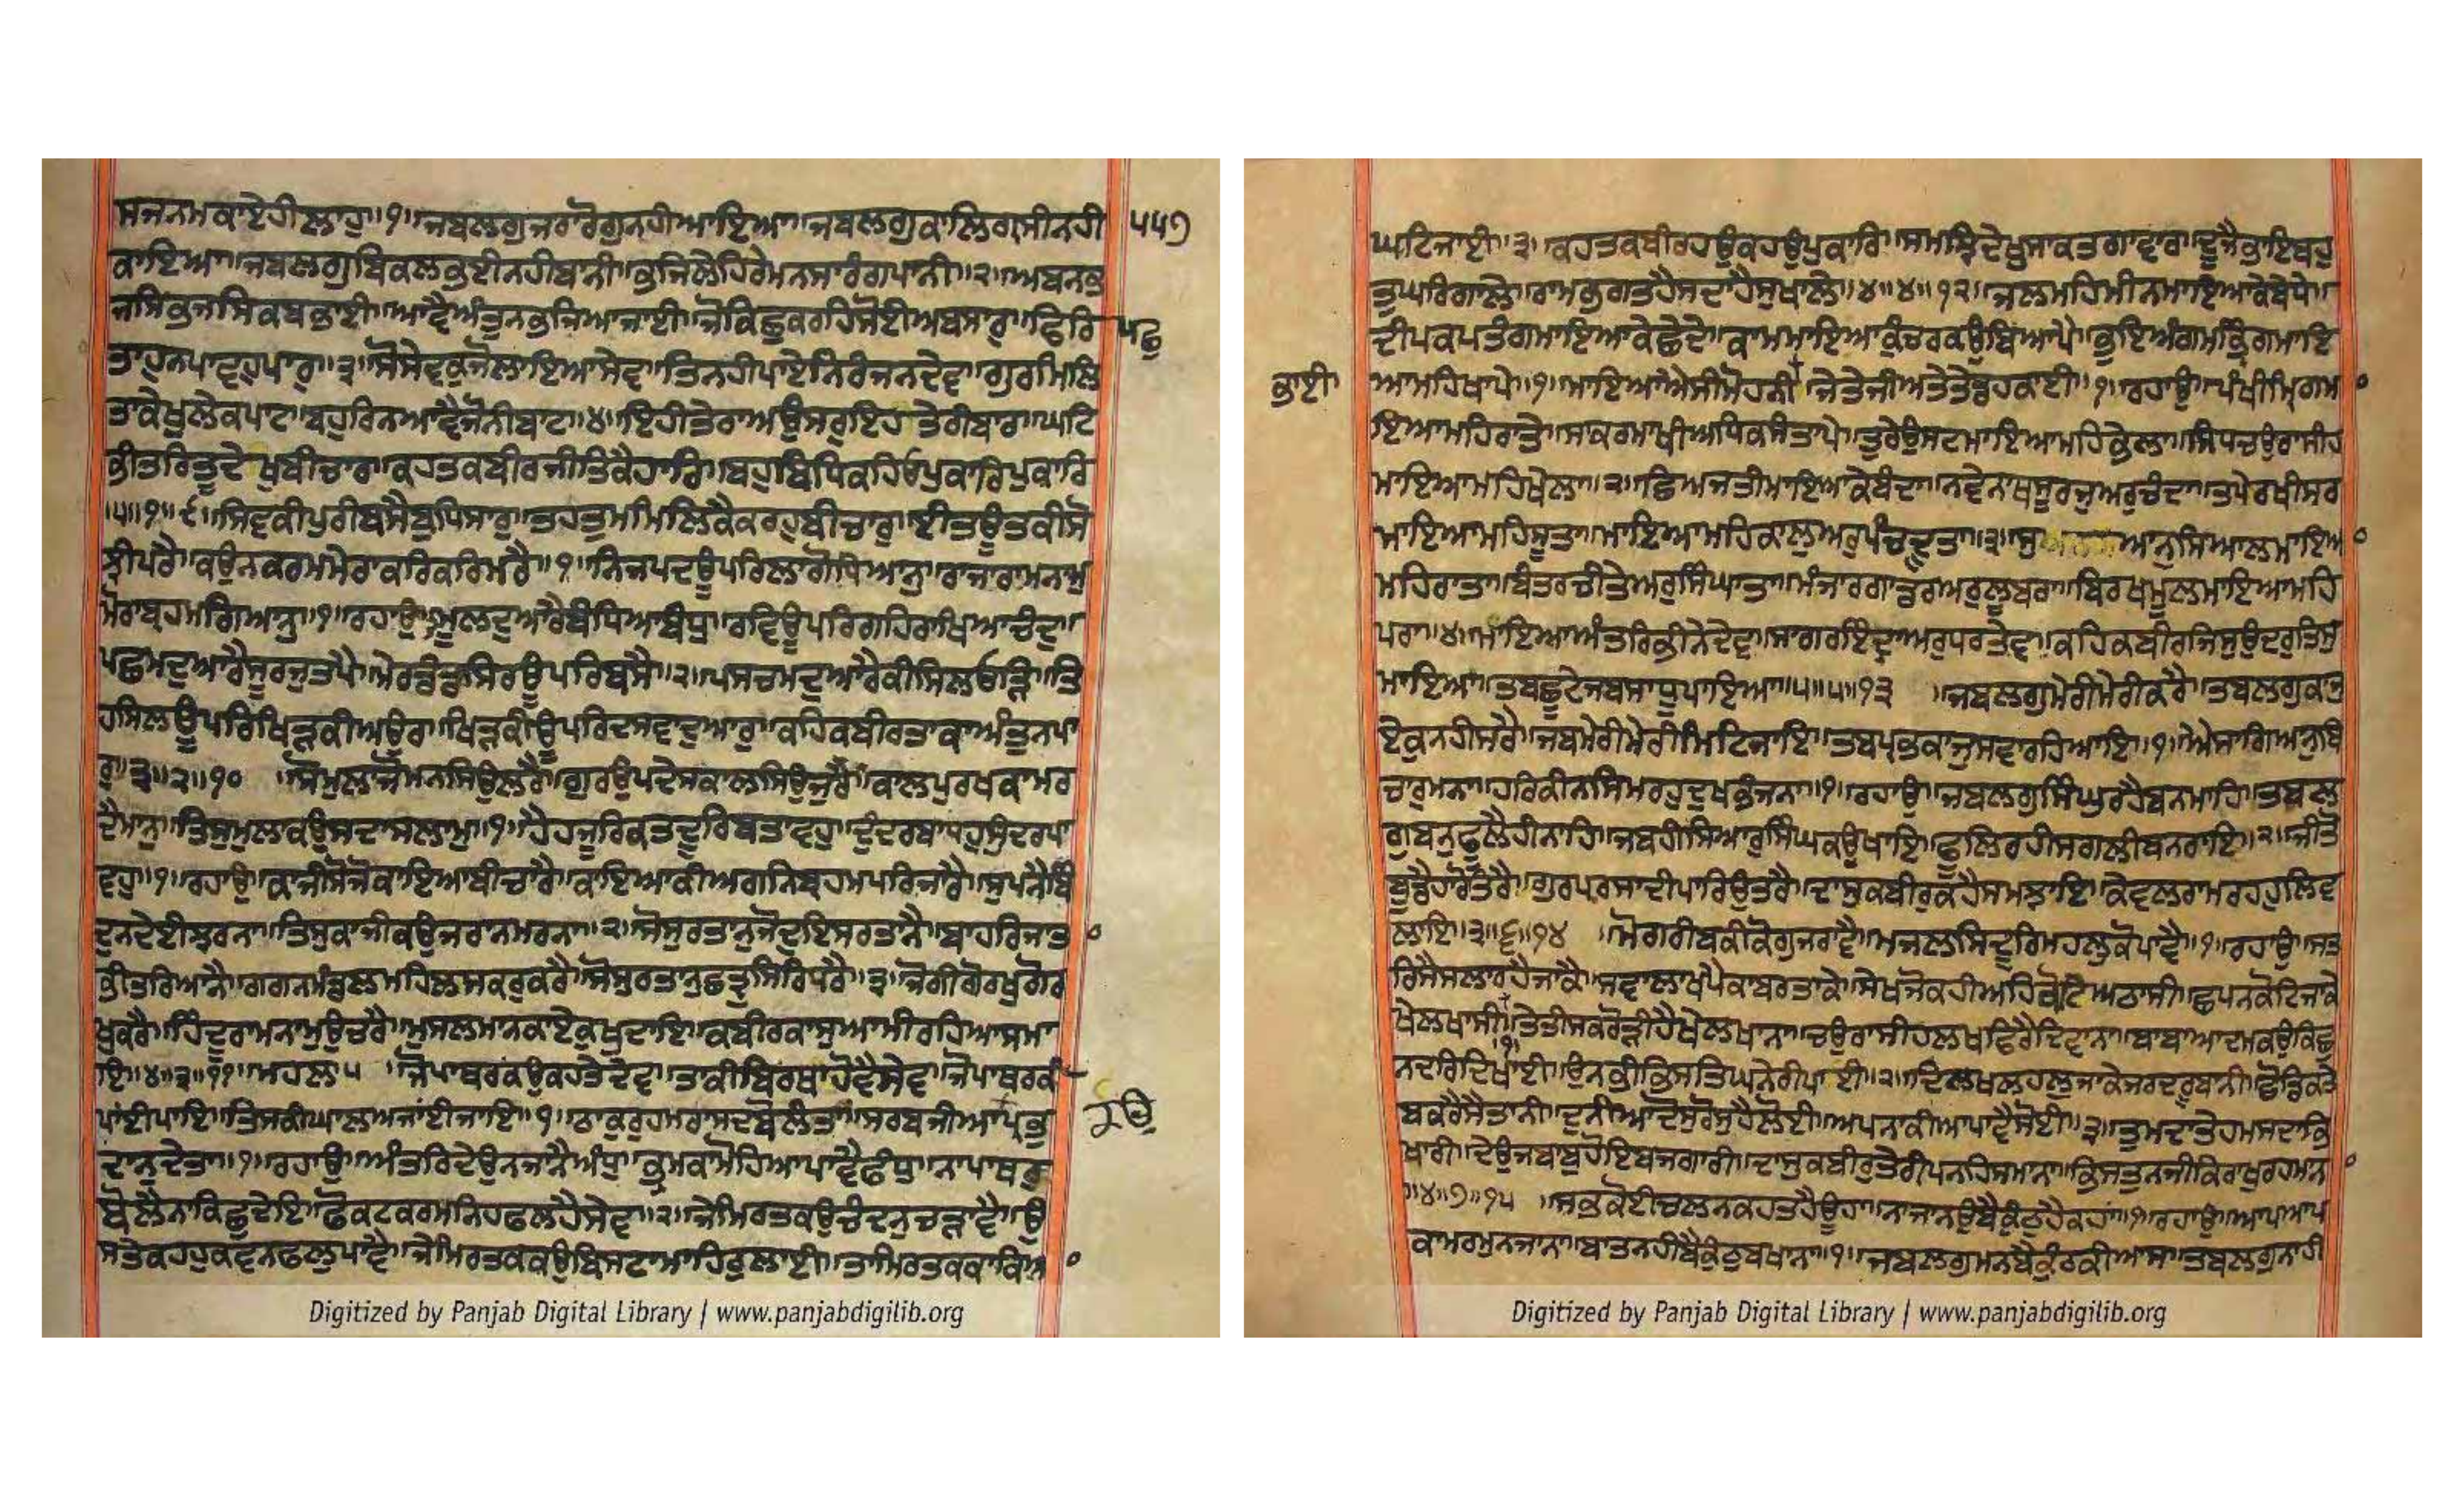 ਸਜਨਮਕਾਏਹੀਲਾਹੁ॥੧॥ਜਬਲਗੁਜਰਾਰੋਗੁਨਹੀਆਇਆ॥ਜਬਲਗੁਕਾਲਿਗ੍ਰਸੀਨਹੀ ੫੫੭
ਕਾਇਆ॥ਜਬਲਗੁਬਿਕਲਭਈਨਹੀਬਾਨੀ॥ਭਜਿਲੇਹਿਰੇਮਨਸਾਰੰਗਪਾਨੀ॥੨॥ਅਬਨਭ
ਜਸਿਭਜਸਿਕਬਭਾਈ॥ਆਵੈਅੰਤੁਨਭਜਿਆਜਾਈ॥ਜੋਕਿਛੁਕਰਹਿਸੋਈਅਬਸਾਰੁ॥ਫਿਰਿ ਪਛੁ
ਤਾਹੁਨਪਾਵਹੁਪਾਰੁ॥੩॥ਸੋਸੇਵਕੁਜੋਲਾਇਆਸੇਵ॥ਤਿਨਹੀਪਾਏਨਿਰੰਜਨਦੇਵ॥ਗੁਰਮਿਲਿ
ਤਾਕੇਖੁਲੇਕਪਾਟ॥ਬਹੁਰਿਨਆਵੈਜੋਨੀਬਾਟ॥੪॥ਇਹੀਤੇਰਾਅਉਸਰੁਇਹਤੇਰੀਬਾਰ॥ਘਟਿ
ਭੀਤਰਿਤੂਦੇਖੁਬੀਚਾਰ॥ਕਹਤਕਬੀਰਜੀਤਿਕੈਹਾਰਿ॥ਬਹੁਬਿਧਿਕਹਿਓਪੁਕਾਰਿਪੁਕਾਰਿ
॥੫॥੧॥੯॥ਸਿਵਕੀਪੁਰੀਬਸੈਬੁਧਿਸਾਰੁ॥ਤਹਤੁਮਮਿਲਿਕੈਕਰਹੁਬੀਚਾਰੁ॥ਈਤਊਤਕੀਸੋ
ਝੀਪਰੈ॥ਕਉਨਕਰਮਮੇਰਾਕਰਿਕਰਿਮਰੈ॥੧॥ਨਿਜਪਦਊਪਰਿਲਾਗੋਧਿਆਨੁ॥ਰਾਜਾਰਾਮਨਾਮੁ
ਮੋਰਾਬ੍ਰਹਮਗਿਆਨੁ॥੧॥ਰਹਾਉ॥ਮੂਲਦੁਆਰੈਬੰਧਿਆਬੰਧੁ॥ਰਵਿਊਪਰਿਗਹਿਰਾਖਿਆਚੰਦੁ॥
ਪਛਮਦੁਆਰੈਸੂਰਜੁਤਪੈ॥ਮੇਰਡੰਡਸਿਰਊਪਰਿਬਸੈ॥੨॥ਪਸਚਮਦੁਆਰੈਕੀਸਿਲਓੜ॥ਤਿ
ਹਸਿਲਊਪਰਿਖਿੜਕੀਅਉਰ॥ਖਿੜਕੀਊਪਰਿਦਸਵਾਦੁਆਰੁ॥ਕਹਿਕਬੀਰਤਾਕਾਅੰਤੁਨਪਾ
ਰੁ॥੩॥੨॥੧੦ ॥ਸੋਮੁਲਾਜੋਮਨਸਿਉਲਰੈ॥ਗੁਰਉਪਦੇਸਕਾਲਸਿਉਜੁਰੈ॥ਕਾਲਪੁਰਖਕਾਮਰ
ਦੈਮਾਨੁ॥ਤਿਸੁਮੁਲਾਕਉਸਦਾਸਲਾਮੁ॥੧॥ਹੈਹਜੂਰਿਕਤਦੂਰਿਬਤਾਵਹੁ॥ਦੁੰਦਰਬਾਧਹੁਸੁੰਦਰਪਾ
ਵਹੁ॥੧॥ਰਹਾਉ॥ਕਾਜੀਸੋਜੋਕਾਇਆਬੀਚਾਰੈ॥ਕਾਇਆਕੀਅਗਨਿਬ੍ਰਹਮਪਰਿਜਾਰੈ॥ਸੁਪਨੈਬਿੰ
ਦੁਨਦੇਈਝਰਨਾ॥ਤਿਸੁਕਾਜੀਕਉਜਰਾਨਮਰਨਾ॥੨॥ਸੋਸੁਰਤਾਨੁਜੋਦੁਇਸਰਤਾਨੈ॥ਬਾਹਰਿਜਾਤਾ
ਭੀਤਰਿਆਨੈ॥ਗਗਨਮੰਡਲਮਹਿਲਸਕਰੁਕਰੈ॥ਸੋਸੁਰਤਾਨੁਛਤ੍ਰੁਸਿਰਿਧਰੈ॥੩॥ਜੋਗੀਗੋਰਖੁਗੋਰ
ਖੁਕਰੈ॥ਹਿੰਦੂਰਾਮਨਾਮੁਉਚਰੈ॥ਮੁਸਲਮਾਨਕਾਏਕੁਖੁਦਾਇ॥ਕਬੀਰਕਾਸੁਆਮੀਰਹਿਆਸਮਾ
ਇ॥੪॥੩॥੧੧॥ਮਹਲਾ੫ ॥ਜੋਪਾਥਰਕਉਕਹਤੇਦੇਵ॥ਤਾਕੀਬਿਰਥਾਹੋਵੈਸੇਵ॥ਜੋਪਾਥਰਕੀ
ਪਾਂਈਪਾਇ॥ਤਿਸਕੀਘਾਲਅਜਾਂਈਜਾਇ॥੧॥ਠਾਕੁਰੁਹਮਰਾਸਦਬੋਲੰਤਾ॥ਸਰਬਜੀਆਪ੍ਰਭੁ
ਦਾਨੁਦੇਤਾ॥੧॥ਰਹਾਉ॥ਅੰਤਰਿਦੇਉਨਜਾਨੈਅੰਧੁ॥ਭ੍ਰਮਕਾਮੋਹਿਆਪਾਵੈਫੰਧੁ॥ਨਾਪਾਥਰੁ
ਬੋਲੈਨਾਕਿਛੁਦੇਇ॥ਫੋਕਟਕਰਮਨਿਹਫਲਹੈਸੇਵ॥੨॥ਜੇਮਿਰਤਕਉਚੰਦਨੁਚੜਾਵੈ॥ਉ
ਸਤੇਕਹਹੁਕਵਨਫਲੁਪਾਵੈ॥ਜੇਮਿਰਤਕਕਉਬਿਸਟਾਮਾਹਿਰੁਲਾਈ॥ਤਾਂਮਿਰਤਕਕਾਕਿਆ
ਘਟਿਜਾਈ॥੩॥ਕਹਤਕਬੀਰਹਉਕਹਉਪੁਕਾਰਿ॥ਸਮਝਿਦੇਖੁਸਾਕਤਗਾਵਾਰ॥ਦੂਜੈਭਾਇਬਹੁ
ਤੁਘਰਿਗਾਲੇ॥ਰਾਮਭਗਤਹੈਸਦਾਹੈਸੁਖਾਲੇ॥੪॥੪॥੧੨॥ਜਲਮਹਿਮੀਨਮਾਇਆਕੇਬੇਧੇ॥
ਦੀਪਕਪਤੰਗਮਾਇਆਕੇਛੇਦੇ॥ਕਾਮਮਾਇਆਕੁੰਚਰਕਉਬਿਆਪੈ॥ਭੁਇਅੰਗਮਭ੍ਰਿੰਗਮਾਇ
ਭਾਈ ਆਮਹਿਖਾਪੇ॥੧॥ਮਾਇਆਐਸੀਮੋਹਨੀ॥ਜੇਤੇਜੀਅਤੇਤੇਡਹਕਾਈ॥੧॥ਰਹਾਉ॥ਪੰਖੀਮ੍ਰਿਗਮਾ
ਇਆਮਹਿਰਾਤੇ॥ਸਾਕਰਮਾਖੀਅਧਿਕਸੰਤਾਪੇ॥ਤੁਰੇਉਸਟਮਾਇਆਮਹਿਭੇਲਾ॥ਸਿਧਚਉਰਾਸੀਹ
ਮਾਇਆਮਹਿਖੇਲਾ॥੨॥ਛਿਅਜਤੀਮਾਇਆਕੇਬੰਦਾ॥ਨਵੈਨਾਥਸੂਰਜਅਰੁਚੰਦਾ॥ਤਪੇਰਖੀਸਰ
ਮਾਇਆਮਹਿਸੂਤਾ॥ਮਾਇਆਮਹਿਕਾਲੁਅਰੁਪੰਚਦੂਤਾ॥੩॥ਸੁਆਨਸਿਆਲਮਾਇਆ
ਮਹਿਰਾਤਾ॥ਬੰਤਰਚੀਤੇਅਰੁਸਿੰਘਾਤਾ॥ਮੰਜਾਰਗਾਡਰਅਰੁਲੂਬਰਾ॥ਬਿਰਖਮੂਲਮਾਇਆਮਹਿ
ਪਰਾ॥੪॥ਮਾਇਆਅੰਤਰਿਭੀਨੇਦੇਵ॥ਸਾਗਰਇੰਦ੍ਰਾਅਰੁਧਰਤੇਵ॥ਕਹਿਕਬੀਰਜਿਸੁਉਦਰੁਤਿਸੁ
ਮਾਇਆ॥ਤਬਛੂਟੇਜਬਸਾਧੂਪਾਇਆ॥੫॥੫॥੧੩ ॥ਜਬਲਗੁਮੇਰੀਮੇਰੀਕਰੈ॥ਤਬਲਗੁਕਾਜੁ
ਏਕੁਨਹੀਸਰੈ॥ਜਬਮੇਰੀਮੇਰੀਮਿਟਿਜਾਇ॥ਤਬਪ੍ਰਭਕਾਜੁਸਵਾਰਹਿਆਇ॥੧॥ਐਸਾਗਿਆਨੁਬਿ
ਚਾਰੁਮਨਾ॥ਹਰਿਕੀਨਸਿਮਰਹੁਦੁਖਭੰਜਨਾ॥੧॥ਰਹਾਉ॥ਜਬਲਗੁਸਿੰਘੁਰਹੈਬਨਮਾਹਿ॥ਤਬਲ
ਗੁਬਨੁਫੂਲੈਹੀਨਾਹਿ॥ਜਬਹੀਸਿਆਰੁਸਿੰਘਕਉਖਾਇ॥ਫੂਲਿਰਹੀਸਗਲੀਬਨਰਾਇ॥੨॥ਜੀਤੋ
ਬੂਡੈਹਾਰੋਤਰੈ॥ਗੁਰਪਰਸਾਦੀਪਾਰਿਉਤਰੈ॥ਦਾਸੁਕਬੀਰੁਕਹੈਸਮਝਾਇ॥ਕੇਵਲਰਾਮਰਹਹੁਲਿਵ
ਲਾਇ॥੩॥੬॥੧੪ ॥ਮੋਗਰੀਬਕੀਕੋਗੁਜਰਾਵੈ॥ਮਜਲਸਿਦੂਰਿਮਹਲੁਕੋਪਾਵੈ॥੧॥ਰਹਾਉ॥ਸਤ
ਰਿਸੈਸਲਾਰਹੈਜਾਕੈ॥ਸਵਾਲਾਖੁਪੈਕਾਬਰਤਾਕੇ॥ਸੇਖਜੋਕਹੀਅਹਿਕੋਟਿਅਠਾਸੀ॥ਛਪਨਕੋਟਿਜਾਕੇ
ਖੇਲਖਾਸੀ॥੧॥ਤੇਤੀਸਕਰੋੜੀਹੈਖੇਲਖਾਨਾ॥ਚਉਰਾਸੀਹਲਖਫਿਰੈਦਿਵਾਨਾ॥ਬਾਬਾਆਦਮਕਉਕਿਛੁ
ਨਦਰਿਦਿਖਾਈ॥ਉਨਭੀਭਿਸਤਿਘਨੇਰੀਪਾਈ॥੨॥ਦਿਲਖਲਹਲੁਜਾਕੇਜਰਦਰੂਬਾਨੀ॥ਛੋਡਿਕਤੇ
ਬਕਰੈਸੈਤਾਨੀ॥ਦੁਨੀਆਦੋਸੁਰੋਸੁਹੈਲੋਈ॥ਅਪਨਾਕੀਆਪਾਵੈਸੋਈ॥੩॥ਤੁਮਦਾਤੇਹਮਸਦਾਭਿ
ਖਾਰੀ॥ਦੇਉਜਬਾਬੁਹੋਇਬਜਗਾਰੀ॥ਦਾਸੁਕਬੀਰੁਤੇਰੀਪਨਹਿਸਮਾਨਾ॥ਭਿਸਤੁਨਜੀਕਿਰਾਖੁਰਹਮਾਨਾ
॥੪॥੭॥੧੫ ॥ਸਭਕੋਈਚਲਨਕਹਤਹੈਊਹਾ॥ਨਾਜਾਨਉਬੈਕੁੰਠੁਹੈਕਹਾ॥੧॥ਰਹਾਉ॥ਆਪਆਪ
ਕਾਮਰਮੁਨਜਾਨਾ॥ਬਾਤਨਹੀਬੈਕੁੰਠੁਬਖਾਨਾ॥੧॥ਜਬਲਗੁਮਨਬੈਕੁੰਠਕੀਆਸ॥ਤਬਲਗੁਨਾਹੀ
Digitized by Panjab Digital Library | www.panjabdigilib.org
Digitized by Panjab Digital Library | www.panjabdigilib.org